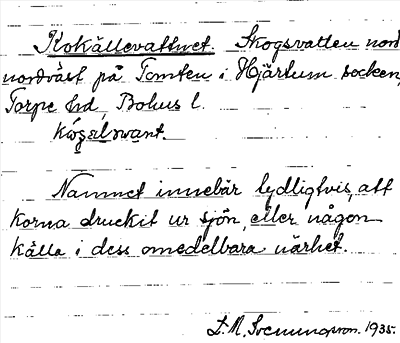 Kokällevattnet. Skogsvatten nord
nordväst på Tomten i Hjärtum socken,
Torpe hd, Bohus l.
Namnet innebär tydligtvis, att
korna druckit ur sjön, eller någon
källa i dess omedelbara närhet.
S. M. Svenungsson. 1935.